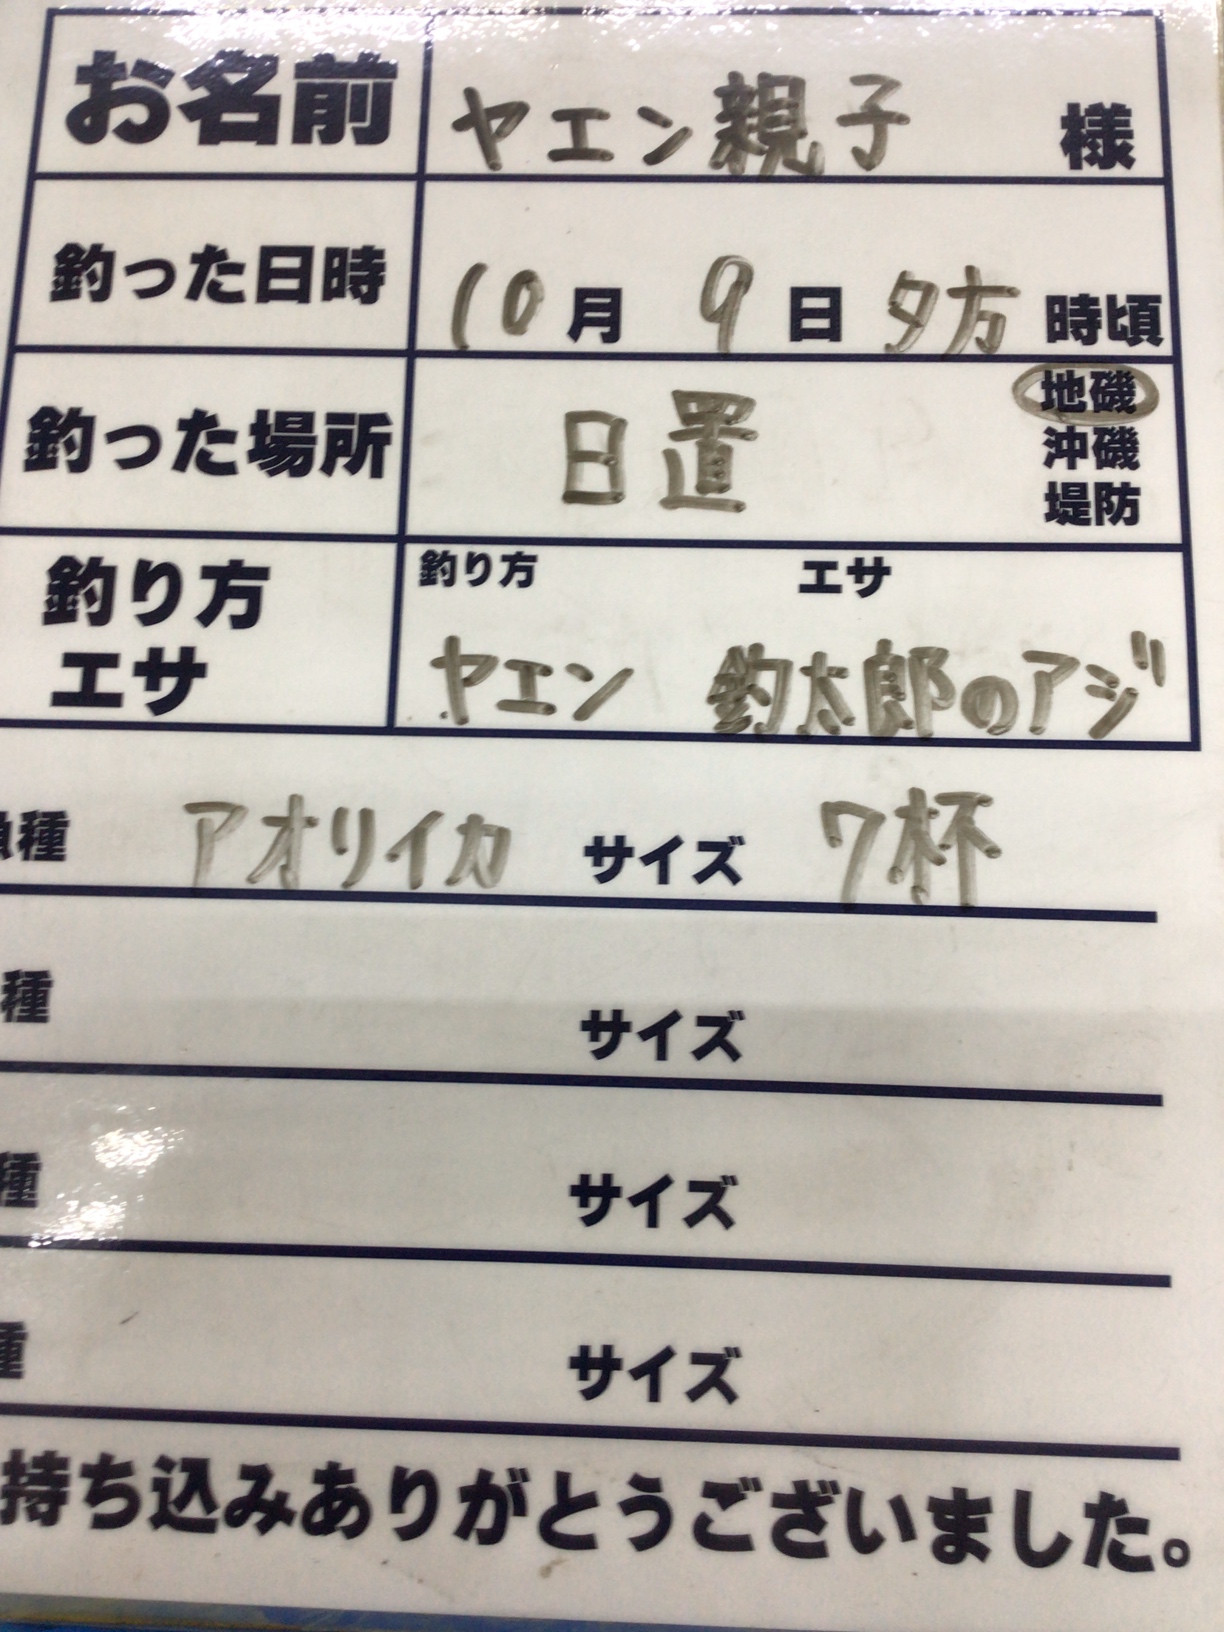 お名前 ヤエン親子 様
釣った日時 10月 9日 夕方 時頃
釣った場所 日置 地磯
沖磯
堤防
釣り方 エサ
釣り方
エサ
ヤエン 釣太郎のアジ
魚種 アオリイカ サイズ 7杯
種 サイズ
種 サイズ
種 サイズ
持ち込みありがとうございました。